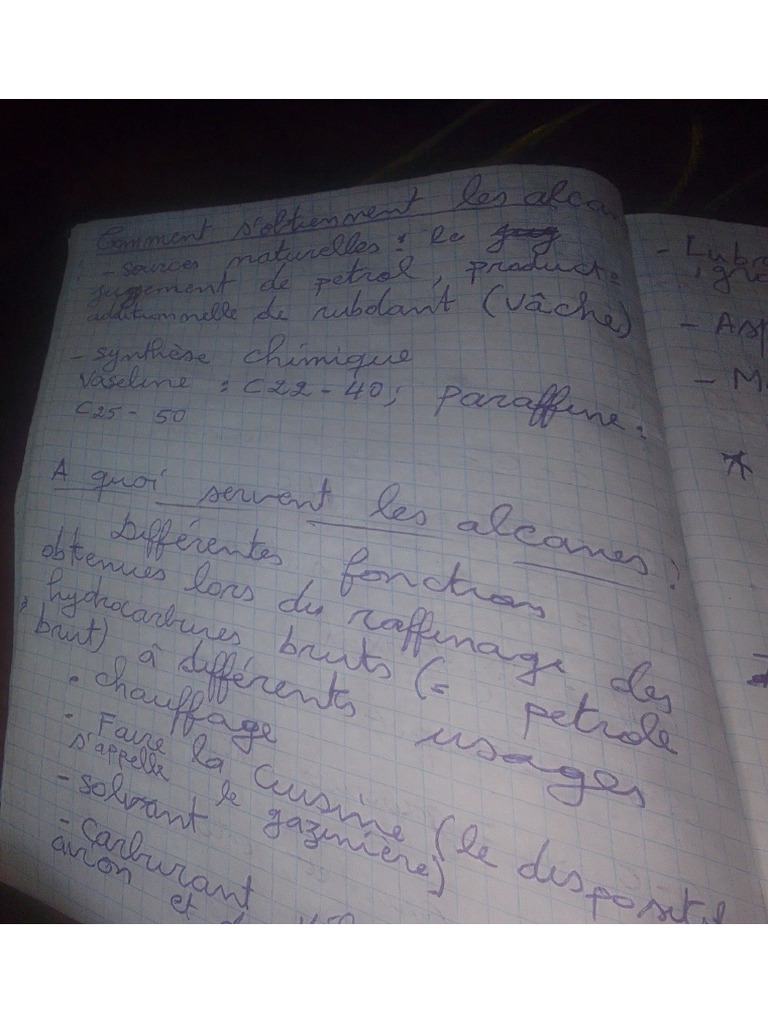 Comment s'obtiennent les alca
- sources naturelles : le
jugement de petrol, product°
additionnelle de rubdant (vâche)
- synthèse chimique
Vaseline : C22 - 40; paraffine :
C25 - 50
A quoi servent les alcanes ?
Différentes fonctions
obtenues lors du raffinage des
hydrocarbures bruts (= petrole
brut) à différents usages
. chauffage
. Faire la cuisine (le dispositif
s'appelle le gazinière)
- solvant
- carburant
avion et
- Lubr
- Asp
- M